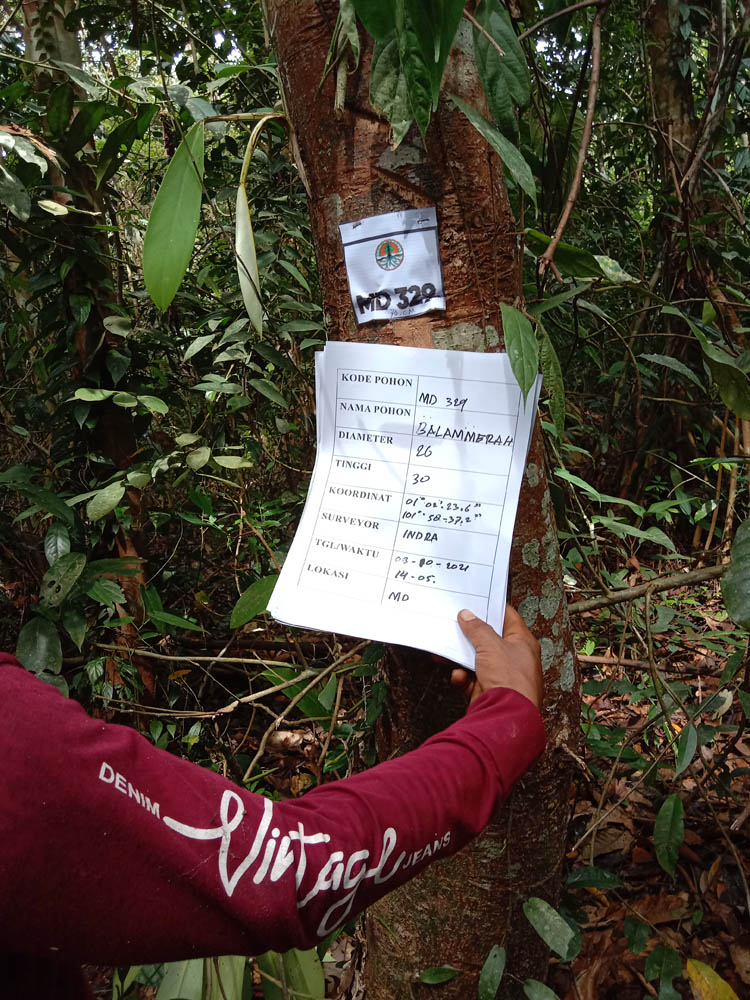 MD 329
KODE POHON MD 329
NAMA POHON BALAM MERAH
DIAMETER 26
TINGGI 30
KOORDINAT 01° 02'. 23,6"
101° - 58 - 37,2"
SURVEYOR INDRA
TGL/WAKTU 03 - 10 - 2021
14 - 05.
LOKASI MD
DENIM
Vintage
JEANS